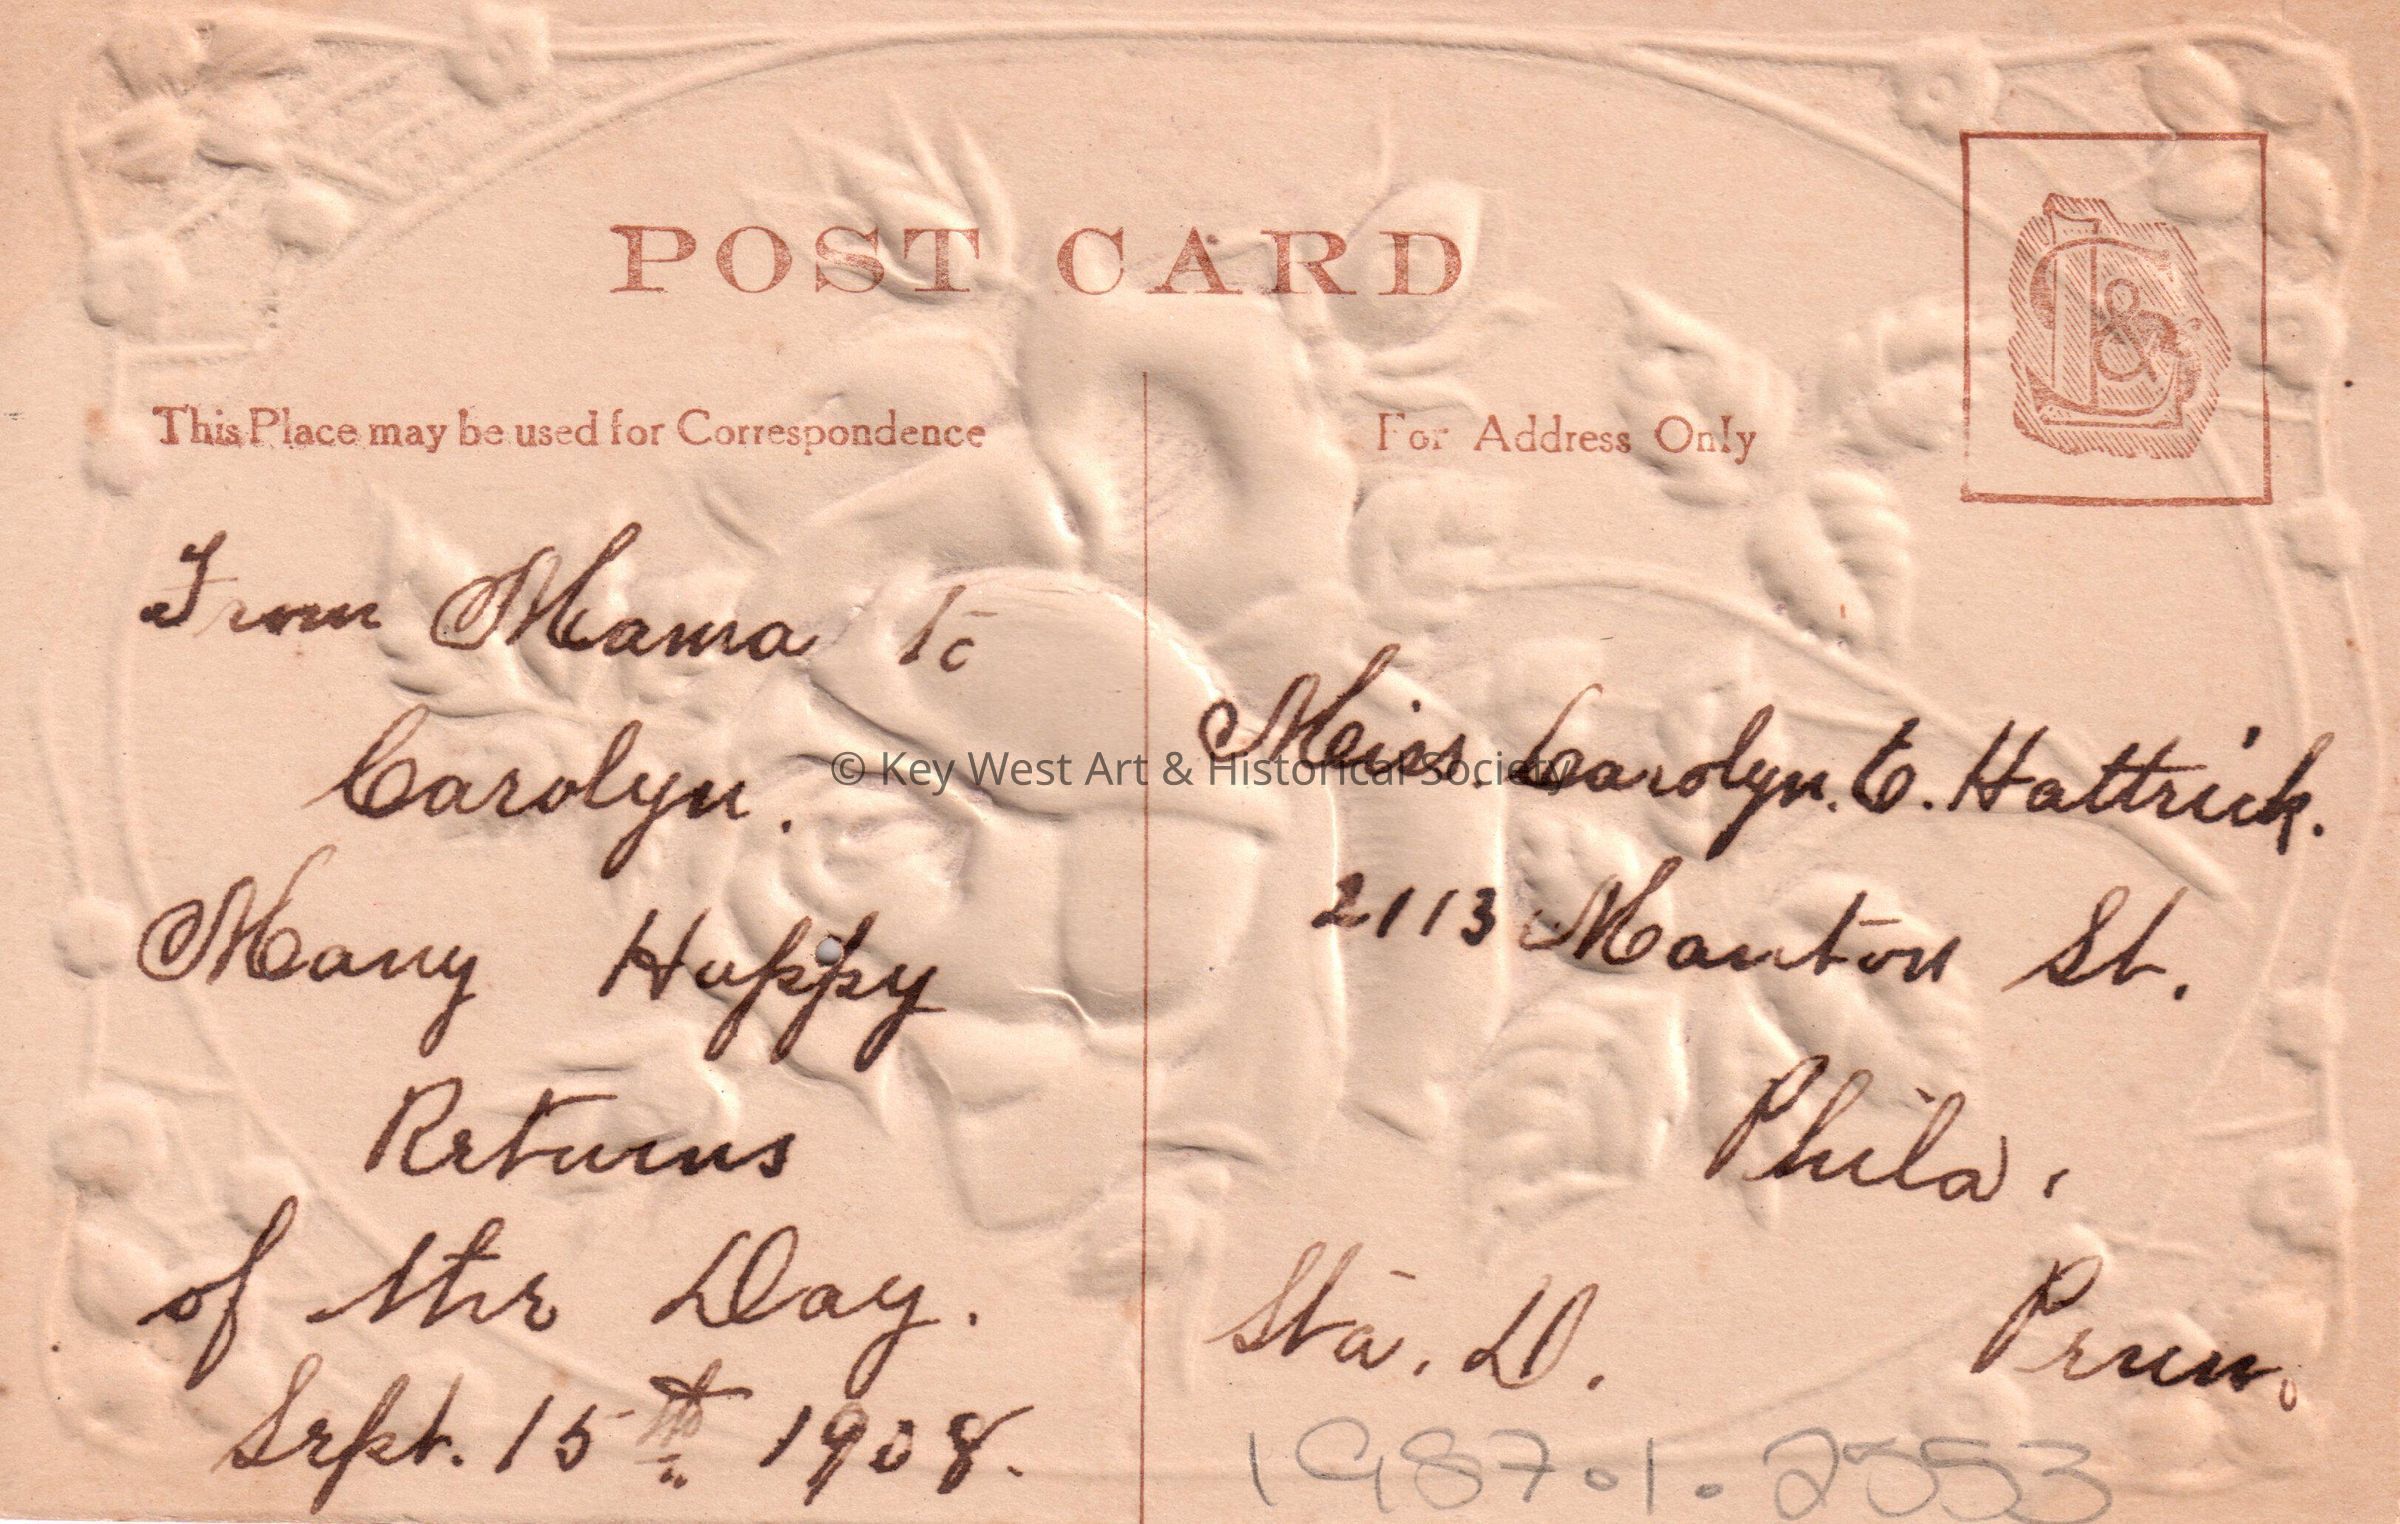 POST CARD
This Place may be used for Correspondence
For Address Only
From Mama to
Carolyn.
Many Happy
Returns
of the Day.
Sept. 15th 1908.
Miss. Carolyn. E. Hattrick.
2113 Manton St.
Phila.
Sta. D. Penn.
1987.1.2553
© Key West Art & Historical Society